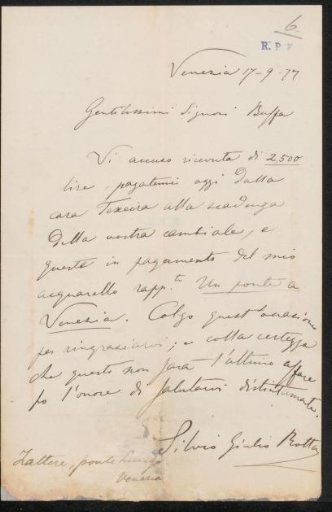 6
R.P.V
Venezia 17-9-77
Gentilissimi Signori Buffa
Vi accuso ricevuta di 2,500
lire, pagatemi oggi dalla
casa Texeira alla scadenza
della vostra cambiale, e
queste in pagamento del mio
acquarello rapp.te Un ponte a
Venezia. Colgo quest'occasione
per ringraziarvi; e colla certezza
che questo non sarà l'ultimo affare
ho l'onore di salutarvi distintamente.
Silvio Giulio Rotta
Zattere, ponte
Venezia